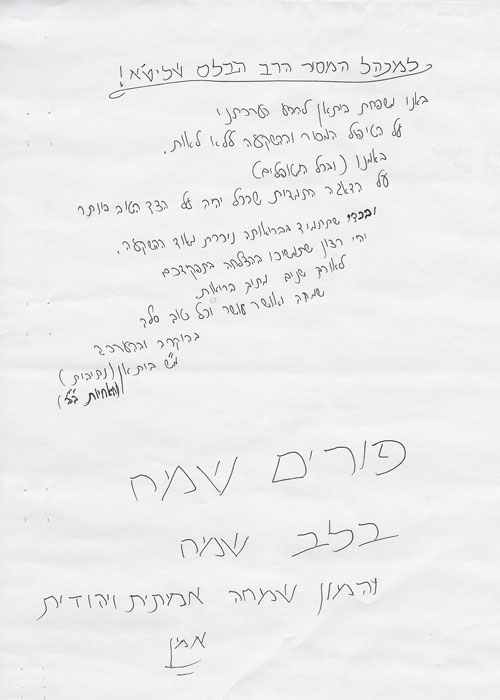 למנהל המסור הרב הבלס שליט"א!
באנו משפחת ביתאן להביע הערכתנו
על הטיפול המסור וההשקעה ללא לאות.
באמנו (ובכל המטופלים)
על הדאגה התמידית שהכל יהיה על הצד הטוב ביותר
ובכדי שתתמיד בבריאותה ניכרת מאוד ההשקעה.
יהי רצון שתמשיכו בהצלחה בתפקידכם
לאורך שנים מתוך בריאות
שמחה ואושר עושר וכל טוב סלה
בהוקרה ובהערכה
מש' ביתאן (נתיבות)
פורים שמח
בלב שמח
והמון שמחה אמיתית ויהודית
אמן